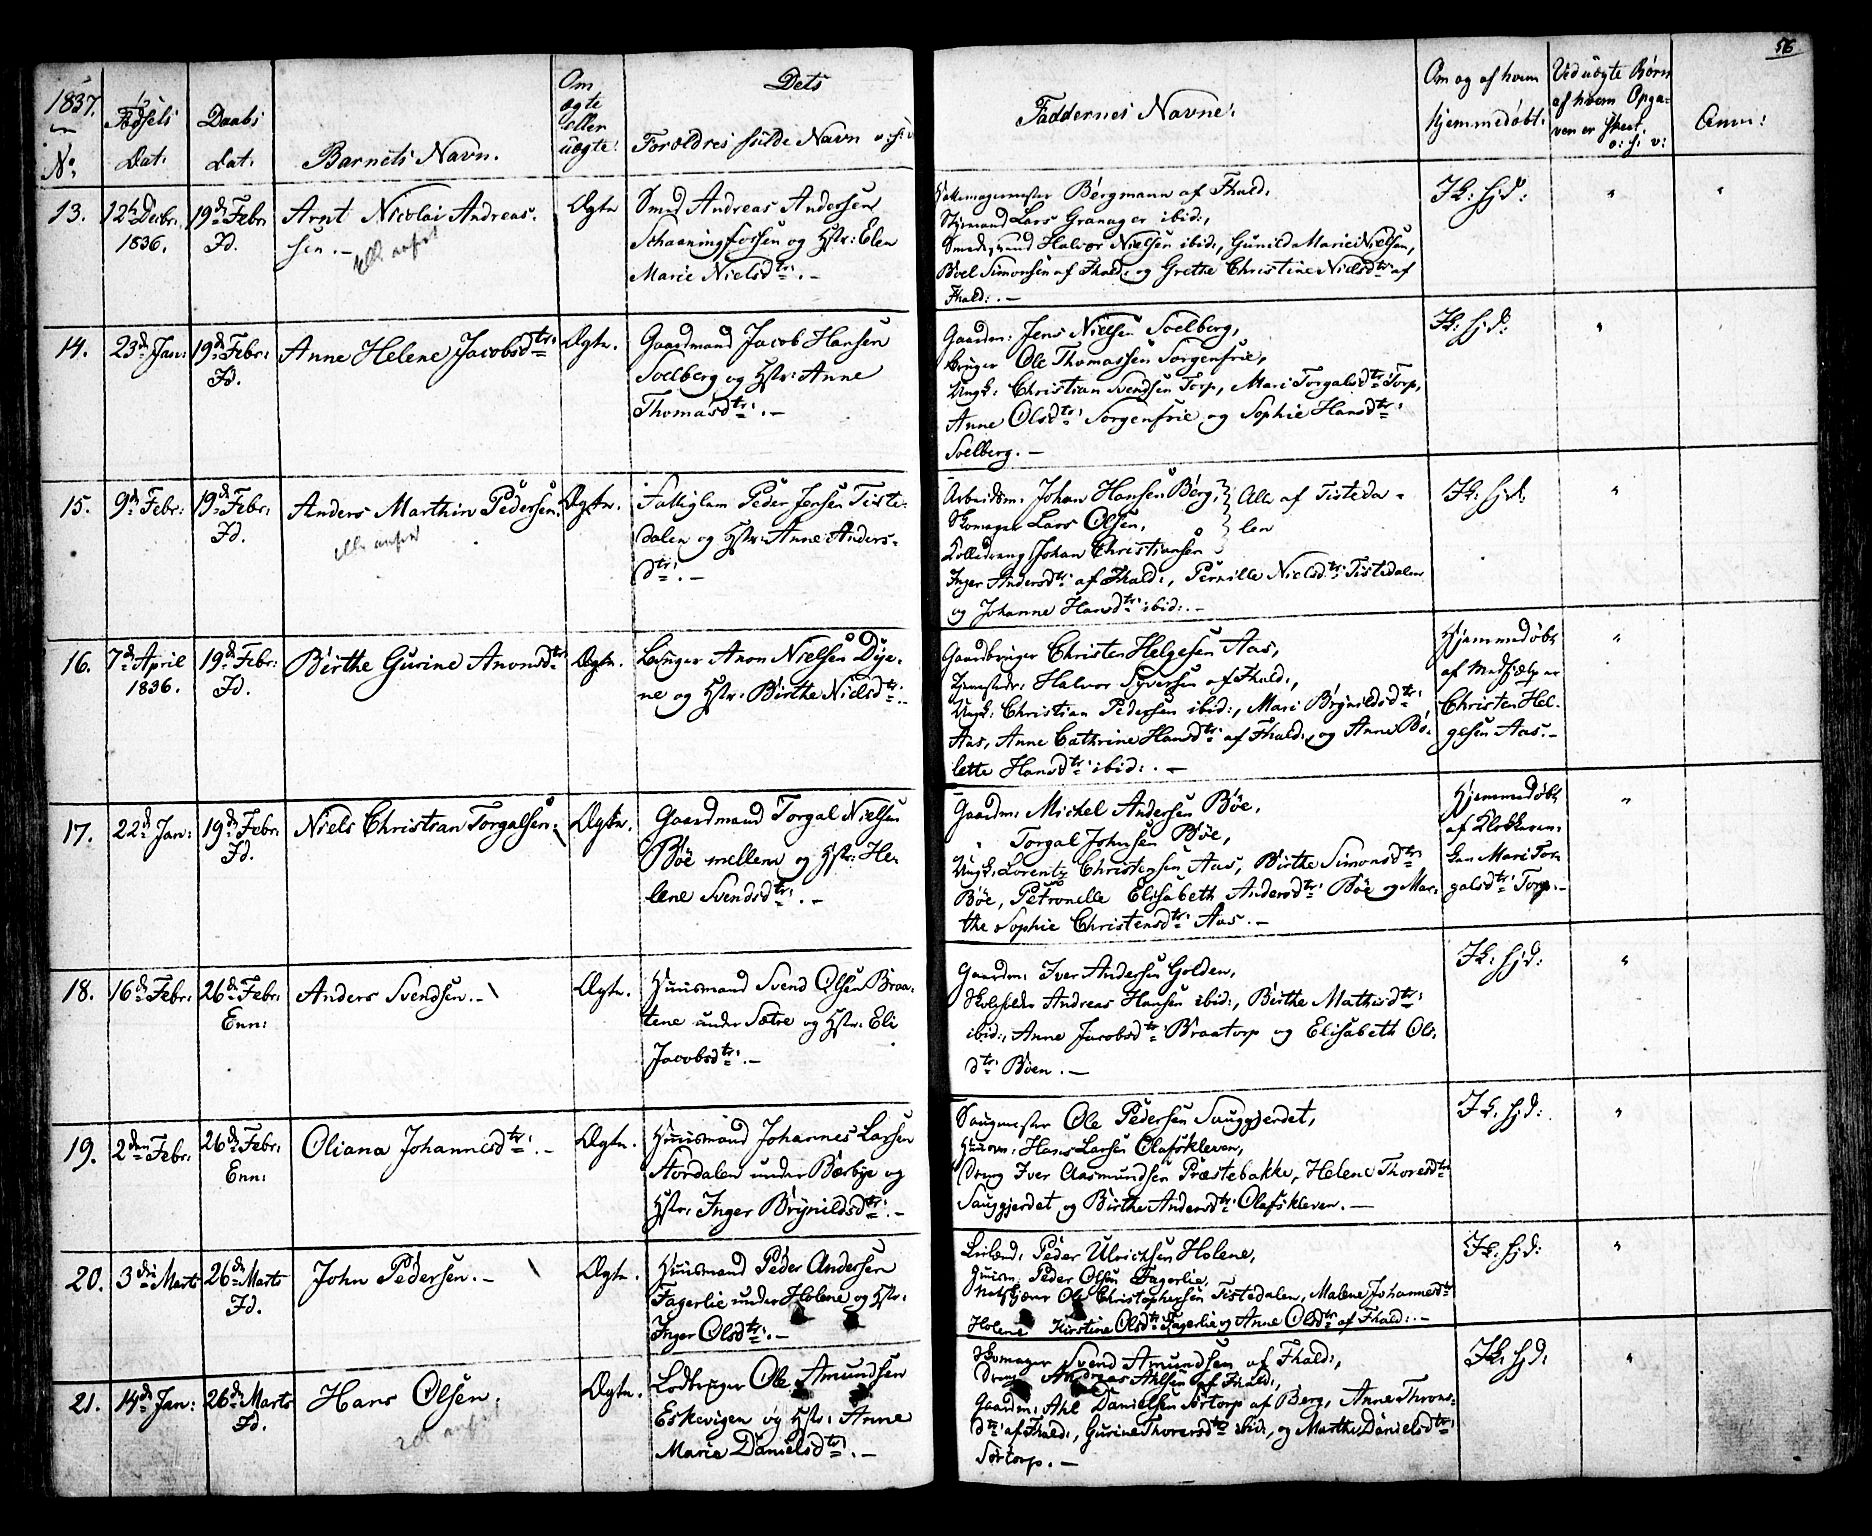 56
1837.
No
Fødsels
Dat:
Daabs
Dat:
Barnets Navn.
Om
ægte
eller
uægte:
Dets
Forældres fulde Navn o: s: v:
Faddernes Navne:
Om og af hvem
hjemmedøbt:
Ved uægte Børn
af hvem Opga-
ven er skeet.
o: s: v:
Anm:
13.
12te Decbr.
1836.
19de Febr.
Id.
Arnt Nicolai Andreas-
sen. —
Ægte
Smed Andreas Andersen
Schaaningfossen og Hstr: Elen
Marie Nielsdtr. —
Bergmann af Fhald:
Lars Granager ibid:,
Halvor Nielsen ibid:, Gunild Marie Nielsen,
Boel Simonsen af Fhald: og Grethe Christine Nielsdtr: af
Fhald:. —
Ik: hjd:
"
"
14.
23de Jan:
19de Febr:
Id.
Anne Helene Jacobsdtr:
Ægte.
Gaardmand Jacob Hansen
Soelberg og Hstr: Anne
Thomasdtr:. —
Gaardm: Jens Nielsen Soelberg,
Bruger Ole Thomassen Sorgenfrie,
Ungk: Christian Svendsen Torp, Mari Torgalsdtr: Torp,
Anne Olsdtr: Sorgenfrie og Sophie Hansdtr:
Soelberg. —
Ik: hjd:
"
15.
9de Febr:
19de Febr:
Id.
Anders Marthin Pedersen.
Ægte.
Fattiglem Peder Jensen Tiste-
dalen og Hstr: Anne Anders-
dtr:. —
Arbeidsm: Johan Hansen Berg, } Alle af Tisteda-
Skomager Lars Olsen, len
Johan Christiansen
Inger Andersdtr: af Fhald:, Pernille Nielsdtr: Tistedalen
og Johanne Hansdtr: ibid:. —
Ik: hjd:
"
16.
7de April
1836.
19de Febr:
Id.
Birthe Gurine Anonsdtr:
Ægte.
Anon Nielsen Dye-
ne og Hstr: Birthe Nielsdtr:
Gaardbruger Christen Helgesen Aas,
Halvor Syversen af Fhald:,
Ungk: Christian Pedersen ibid:, Mari Brynildsdtr:
Aas, Anne Cathrine Hansdtr: af Fhald:, og Anne Bo-
lette Hansdtr: ibid:. —
Hjemmedøbt
af Medhjælper
Christen Hel-
gesen Aas. —
"
17.
22de Jan:
19de Febr:
Id.
Niels Christian Torgalsen.
Ægte.
Gaardmand Torgal Nielsen
Bøe mellem og Hstr: He-
lene Svendsdtr:. —
Gaardm: Michel Andersen Bøe,
" Torgal Johnsen Bøe,
Ungk: Lorentz Christensen Aas, Birthe Simonsdtr:
Bøe, Petronelle Elisabeth Andersdtr: Bøe og Mar-
the Sophie Christensdtr: Aas. —
Hjemmedøbt
af Klokkeren-
ken Mari Tor-
galsdtr: Torp. —
"
18.
16de Febr:
26de Febr:
Enn:
Anders Svendsen. —
Ægte.
Huusmand Svend Olsen Braa-
tene under Sætre og Hstr: Eli
Jacobsdtr:. —
Gaardm: Iver Andersen Golden,
Skoleholder Andreas Hansen ibid:, Birthe Mathisdtr:
ibid:, Anne Jacobsdtr: Braatorp og Elisabeth Ols-
dtr: Bøen. —
Ik: hjd:
"
19.
2den Febr:
26de Febr:
Enn:
Oliana Johannesdtr:. —
Ægte.
Huusmand Johannes Larsen
Stordalen under Bærbye og
Hstr: Inger Brynildsdtr:. —
Saugmester Ole Pedersen Sauggjerdet,
Huusm: Hans Larsen Olafskleven,
Dreng Iver Aasmundsen Præstebakke, Helene Thoresdtr:
Sauggjerdet og Birthe Andersdtr: Olafskleven. —
Ik: hjd:
"
20.
3die Marts
26de Marts
Id.
John Pedersen. —
Ægte.
Huusmand Peder Andersen
Fagerlie under Holene og Hstr:
Inger Olsdtr:. —
Leilænd: Peder Ulrichsen Holene,
Huusm: Peder Olsen Fagerlie,
Ole Christophersen Tistedalen, Malene Johannesdtr:
Holene Kirstine Olsdtr: Fagerlie og Anne Olsdtr: af Fhald:. —
Ik: hjd:
"
21.
14de Jan:
26de Marts
Id.
Hans Olsen.
Ægte.
Ole Amundsen
Eskevigen og Hstr: Anne
Marie Danielsdtr:. —
Skomager Svend Amundsen af Fhald:,
Dreng Andreas Ahlsen af Fhald:,
Gaardm: Ahl Danielsen Sørtorp af Berg, Anne Throns-
dtr: af Fhald:, Gurine Thoresdtr: ibid:, og Marthe Danielsdtr:
Sørtorp. —
Ik: hjd:
"